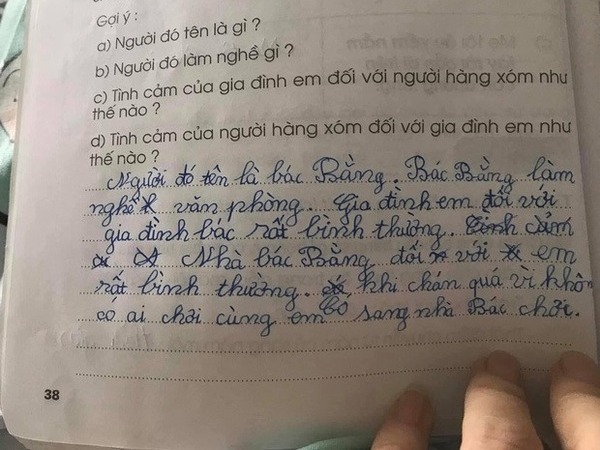 Gợi ý :
a) Người đó tên là gì ?
b) Người đó làm nghề gì ?
c) Tình cảm của gia đình em đối với người hàng xóm như
thế nào ?
d) Tình cảm của người hàng xóm đối với gia đình em như
thế nào ?
Người đó tên là bác Bằng. Bác Bằng làm
nghề văn phòng. Gia đình em đối với
gia đình bác rất bình thường. Tình cảm
Nhà bác Bằng đối với em
rất bình thường. khi chán quá vì khôn
có ai chơi cùng em bỏ sang nhà Bác chơi.
38